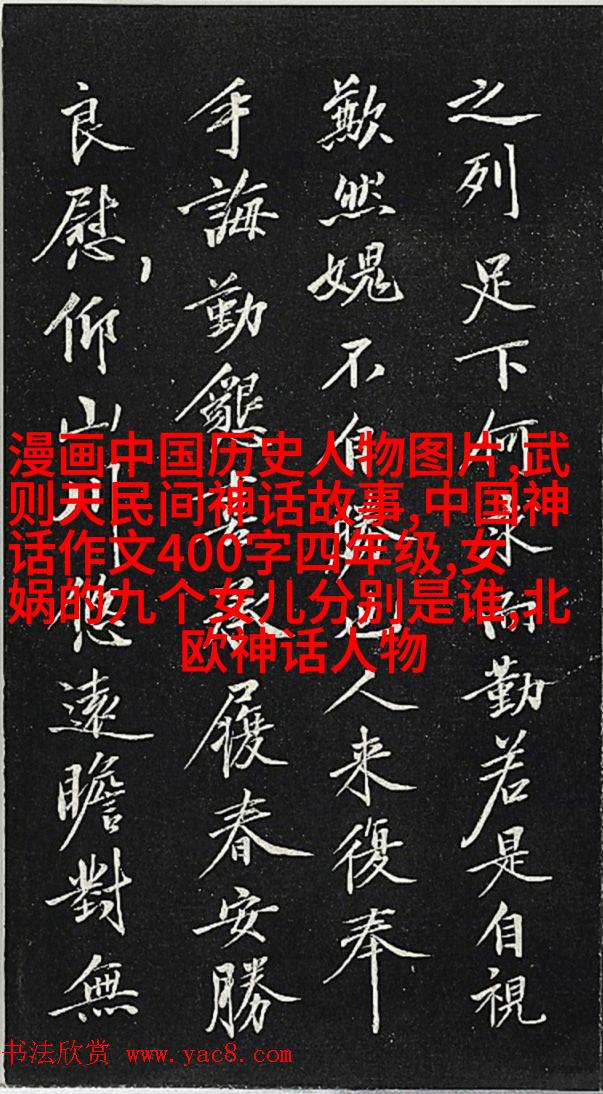 之列足下何求而勤若是自視
歉然媿不自勝也人来復奉
手誨勤懇喜承履春安勝
良慰，仰山川悠遠瞻對無
漫画中国历史人物图片,武
则天民间神话故事,中国神
话作文400字四年级,女
娲的九个女儿分别是谁,北
欧神话人物
书法欣赏 www.yac8.com